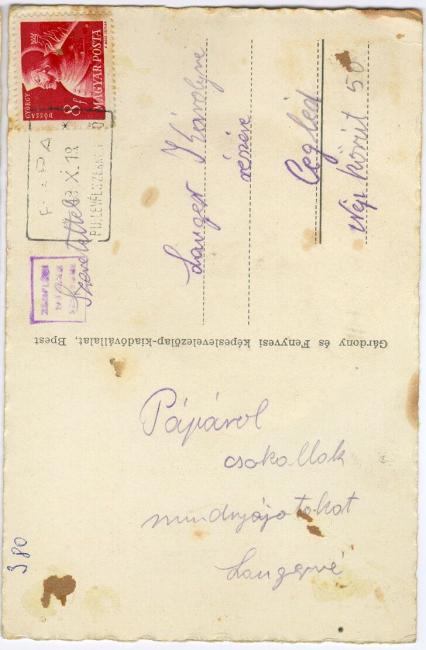 MAGYAR POSTA
8f
DÓZSA
GYÖRGY
X.18
Langer Károlyné
részére
Cegléd
Népkörút 50
Gárdony és Fenyvesi képeslevelezőlap-kiadóvállalat, Bpest
Pápárol
csokollak
mindnyájotokat
Langerné
380